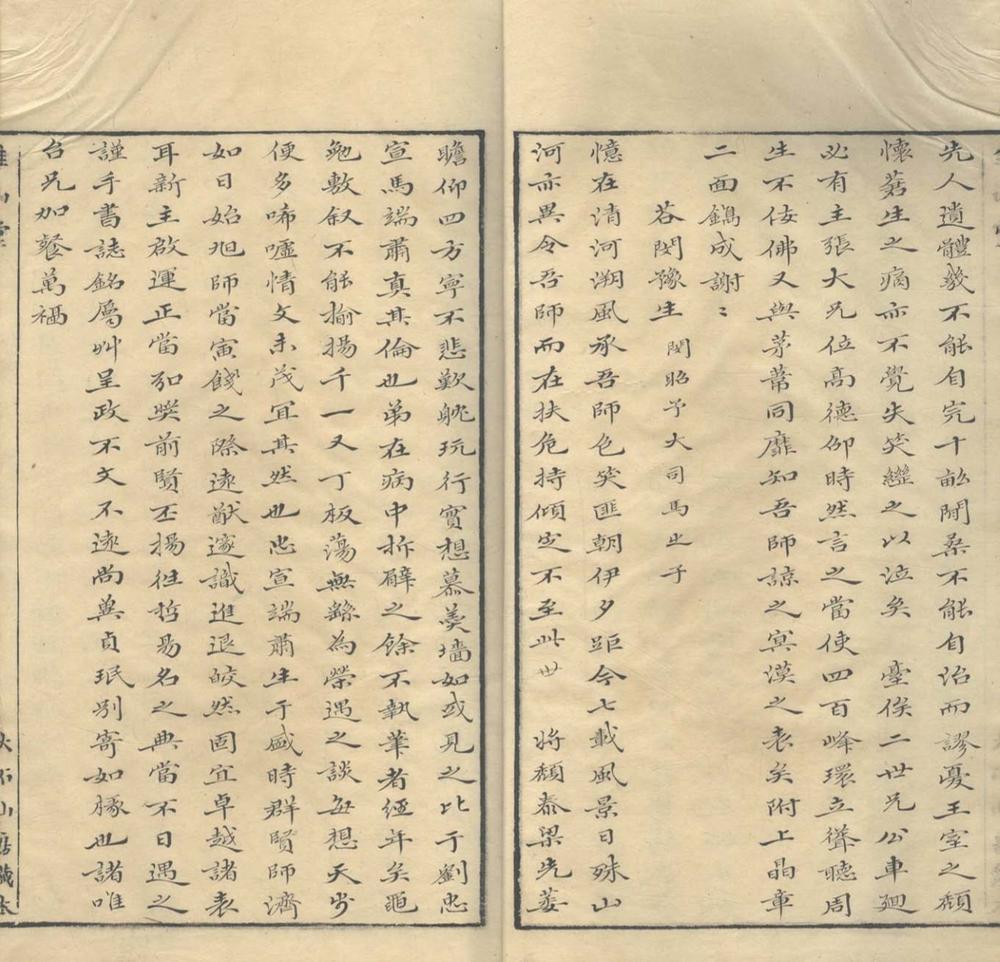 先人遺體幾不能自完十畝閒桑不能自治而謬憂王室之頹
懷蒼生之痛亦不覺失笑繼之以泣矣 臺俟二世兄公車廻
必有主張大兄位高德卲時然言之當使四百峰環立聳聽周
生不佞佛又與茅葦同靡知吾師諒之冥漠之表矣附上晶章
二面鐫成謝〻
答閔豫生 閔昭予大司馬之子
憶在清河溯風承吾師色笑匪朝伊夕距今七載風景日殊山
河亦異令吾師而在扶危持傾定不至此世 將頹泰梁先萎
瞻仰四方寧不悲歎眺玩行實想慕羹墻如或見之比于劉忠
宣馬端肅真其倫也弟在病中拆辟之餘不執筆者經年矣黽
勉敷叙不能揄揚千一又丁板蕩無繇為榮遇之談每想天步
便多唏噓情文未茂宜其然也忠宣端肅生于盛時群賢師濟
如日始旭師當寅餞之際遠猷邃識進退皎然固宜卓越諸表
耳新主啟運正當加獎前賢丕揚徃哲易名之典當不日遇之
謹手書誌銘屬艸呈政不文不遠尚兾貞珉別寄如椽也諸唯
台兄加餐萬福